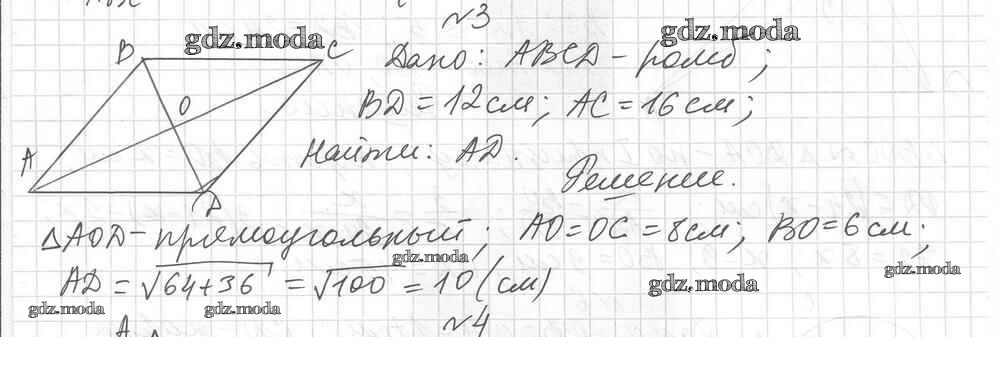 №3
gdz.moda gdz.moda
B C
Дано: ABCD - ромб;
O
BD = 12 см; AC = 16 см;
A
Найти: AD.
Решение.
D
△AOD - прямоугольный; AO = OC = 8 см; BO = 6 см;
gdz.moda gdz.moda
AD = √64+36 = √100 = 10 (см)
gdz.moda gdz.moda gdz.moda
A №4